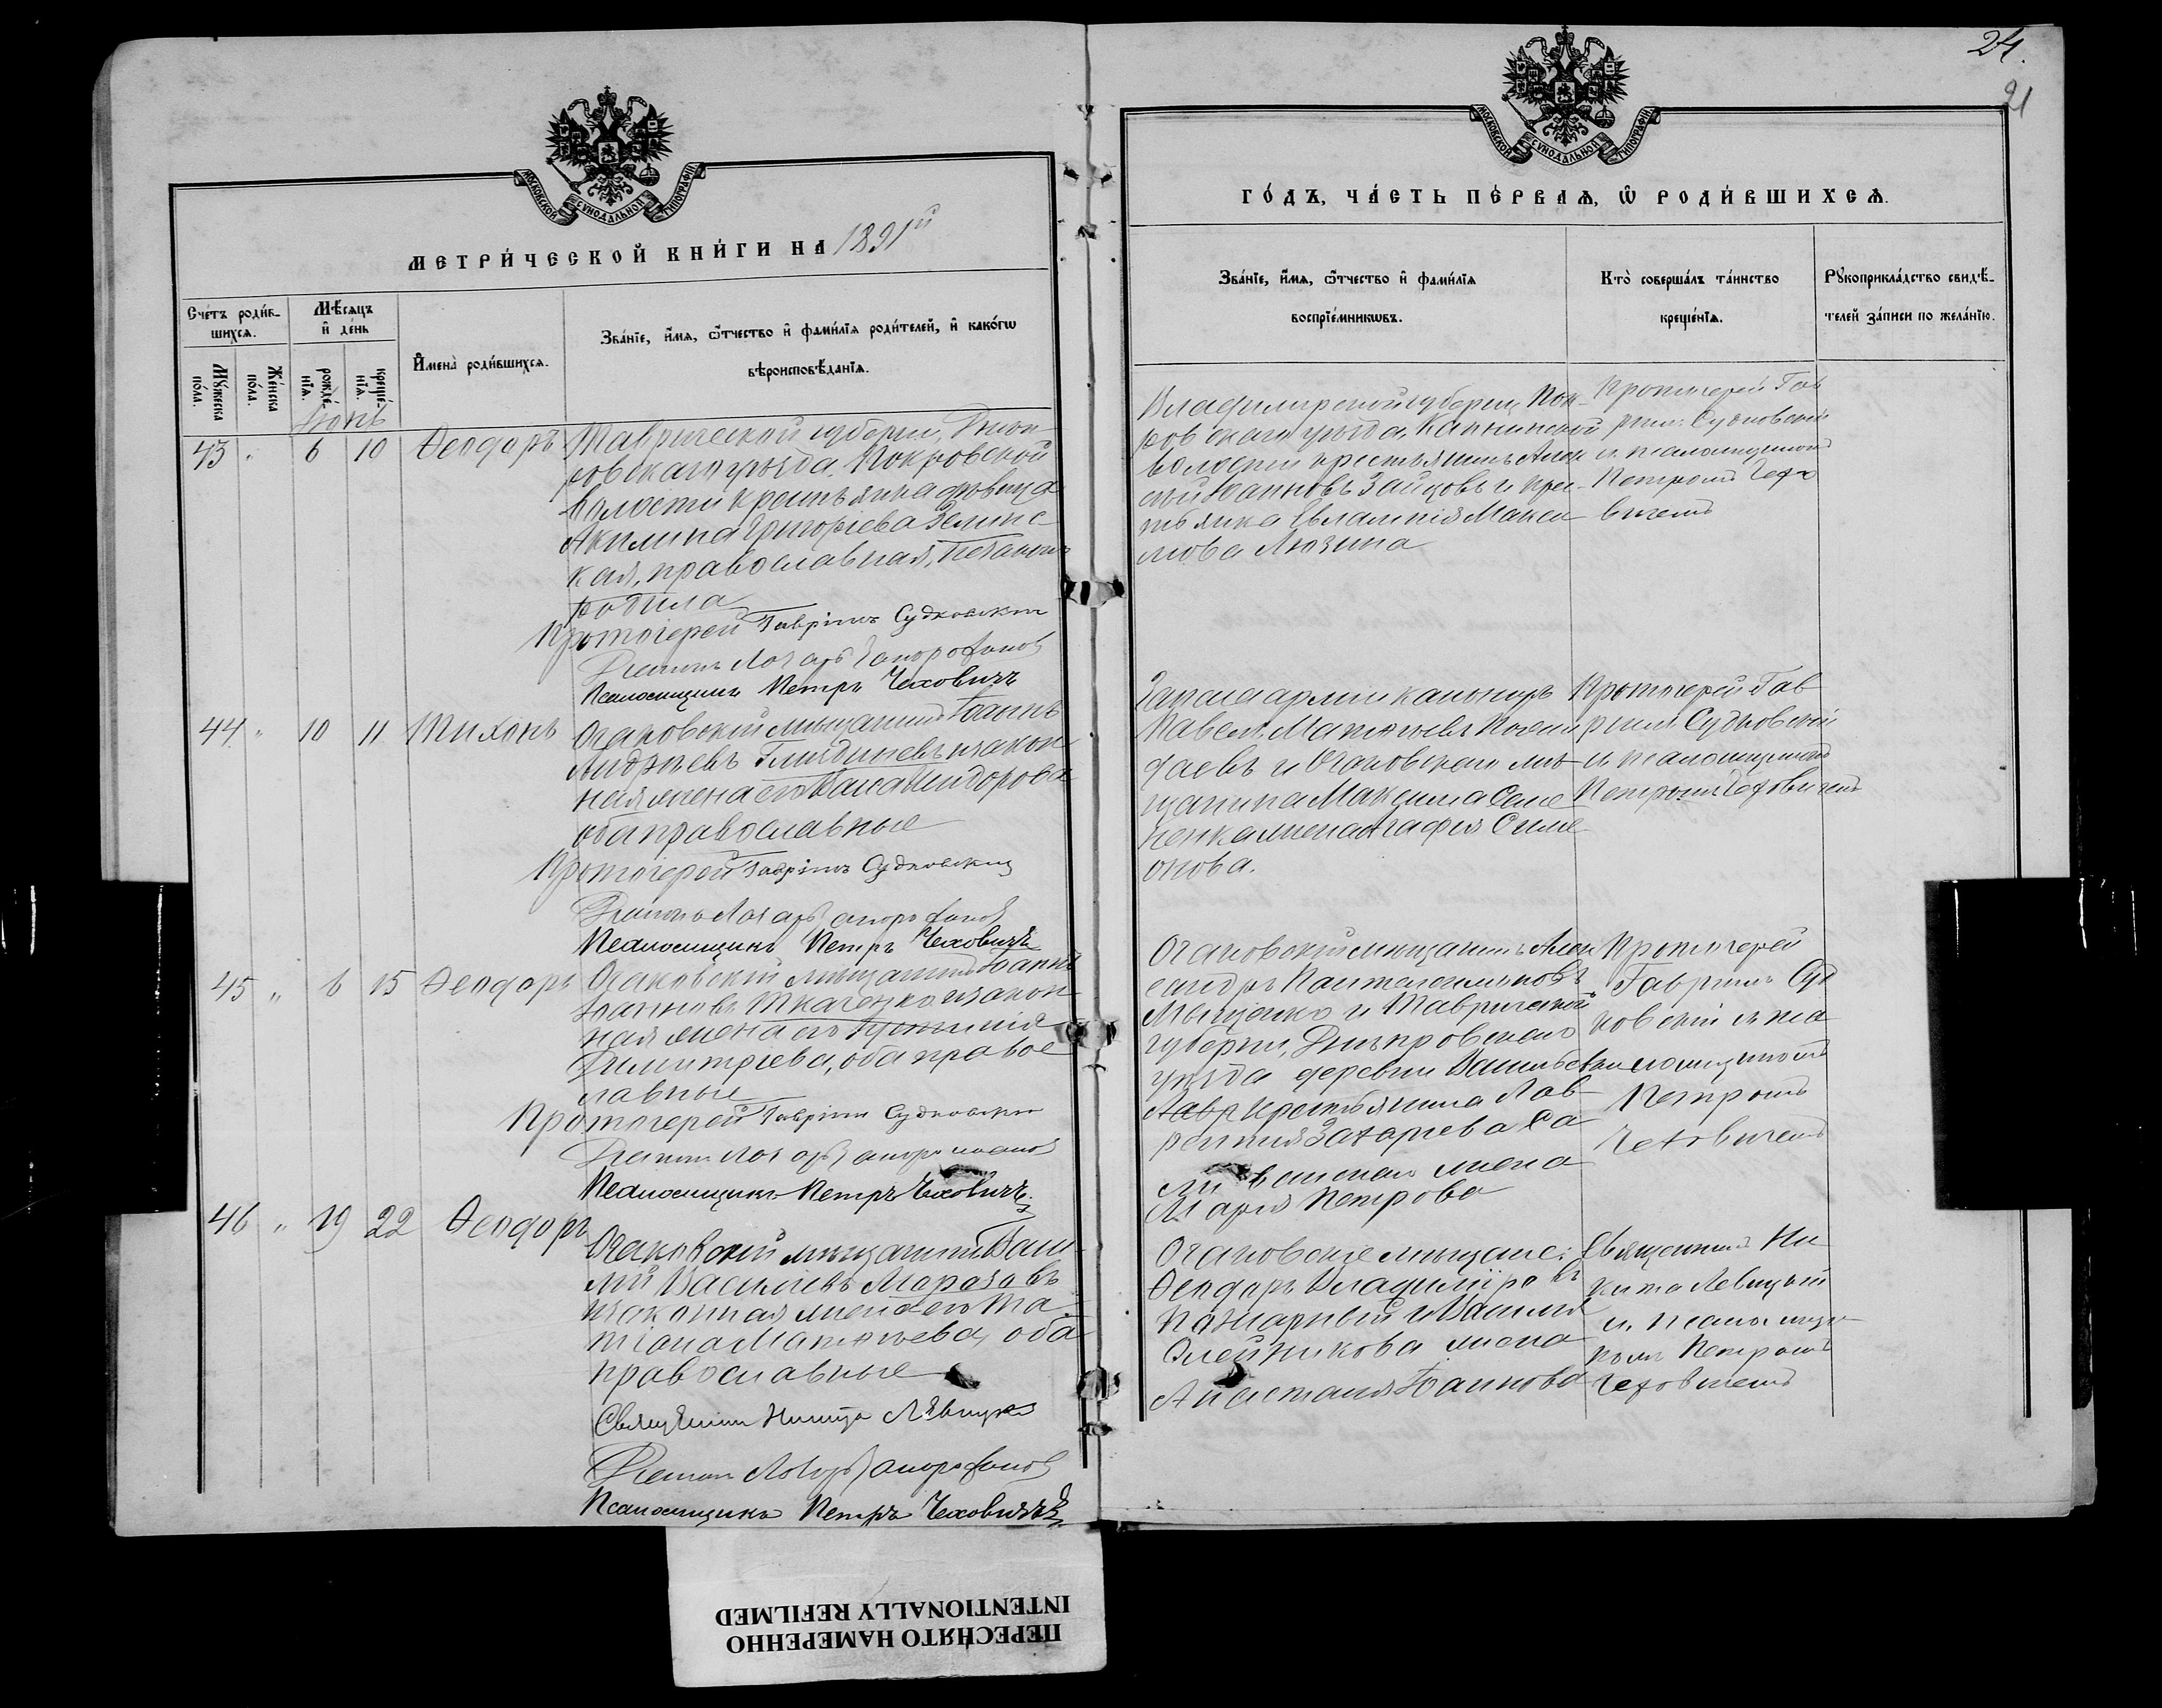 МОСКОВСКОЙ СУНОДАЛЬНОЙ ТИПОГРАФІИ
МЕТРИ́ЧЕСКОЙ КНИ́ГИ НА 1891й
Сче́тъ роди́в-
шихсѧ.
Мѣ́сѧцъ
и҆ де́нь
Мꙋ́жеска
по́ла.
Же́нска
по́ла.
рожде́-
нїѧ.
креще́-
нїѧ.
И҆мена̀ роди́вшихсѧ.
Зва́нїе, и҆́мѧ, ѻ҆́тчество и҆ фами́лїѧ роди́телей, и҆ како́гѡ
вѣроисповѣ́данїѧ.
Іюнь
43 " 6 10 Ѳеодоръ
Таврической губерніи, Днѣп-
ровскаго уѣзда. Покровской
волости крестьянка дѣвица
Акилина Григоріева Зелинс-
кая, православная, незаконно
родила
Протоіерей Гавріилъ Судковскій
Діаконъ
Псаломщикъ Петръ Чеховичъ
44. " 10 11 Тихонъ
Очаковскій мѣщанинъ Іоаннъ
Андреевъ и закон
ная жена его Исидорова
оба православные
Протоіерей Гавріилъ Судковскій
Діаконъ
Псаломщикъ Петръ Чеховичъ
45 " 6 15 Ѳеодоръ
Очаковскій мѣщанинъ Іоаннъ
Іоанновъ Ткаченко и закон
ная жена его
Димитріева, оба правос
лавные
Протоіерей Гавріилъ Судковскій
Діаконъ
Псаломщикъ Петръ Чеховичъ.
46 " 19 22 Ѳеодоръ
Очаковскій мѣщанинъ Васи-
лій Васильевъ Морозовъ
и законная жена его Та
тіана Матѳеева, оба
православные
Священникъ Никита Левицкій
Діаконъ
Псаломщикъ Петръ Чеховичъ
24.
21
МОСКОВСКОЙ СУНОДАЛЬНОЙ ТИПОГРАФІИ
ГО́ДЪ, ЧА́СТЬ ПЕ́РВАѦ, Ѡ҆ РОДИ́ВШИХСѦ.
Зва́нїе, и҆́мѧ, ѻ҆́тчество и҆ фами́лїѧ
воспрїе́мникѡвъ.
Кто̀ соверша́лъ та́инство
креще́нїѧ.
Рꙋкоприкла́дство свидѣ́-
телей за́писи по жела́нїю.
Владимирской губерніи, Пок-
ровскаго уѣзда,
волости крестьянинъ Алек
сѣй Іоанновъ Зайцовъ и крес-
тьянка Евлампія Макси
мова Люзина
Протоіерей Гав
ріилъ Судковскій
и псаломщикомъ
Петромъ Чехо
вичемъ
Запаса арміи канониръ
Павелъ Матѳеевъ
и Очаковскаго мѣ-
щанина Максима Семе
ненка жена Агафія Симе
онова.
Протоіерей Гав
ріилъ Судковскій
и псаломщикомъ
Петромъ Чеховичемъ
Очаковскій мѣщанинъ Алек
сандръ Пантелеимоновъ
Мищенко и Таврической
губерніи, Днѣпровскаго
уѣзда деревни Васильевки
крестьянина Лав-
рентія Захаріева
жена
Марія Петрова
Протоіерей
Гавріилъ Суд
ковскій и пса
ломщикомъ
Петромъ
Чеховичемъ
Очаковскіе мѣщане:
Ѳеодоръ Владиміровъ
Пожарный и Василія
Олейникова жена
Анастасія Іоаннова
Священникъ Ни-
кита Левицкій
и псаломщи-
комъ Петромъ
Чеховичемъ
ПЕРЕСНЯТО НАМЕРЕННО
INTENTIONALLY REFILMED